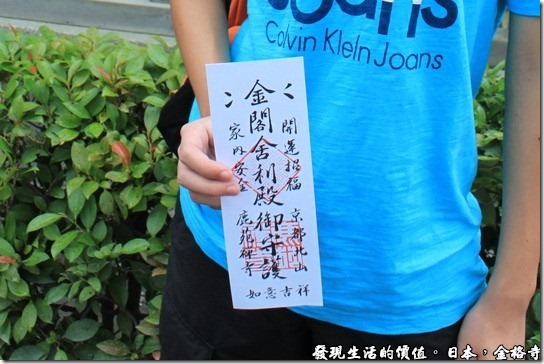 Joans
Calvin Klein Joans
金閣舍利殿御守護
開運招福
京都北山
家内安全
鹿苑禅寺
如意吉祥
發現生活的價值。日本,金格寺